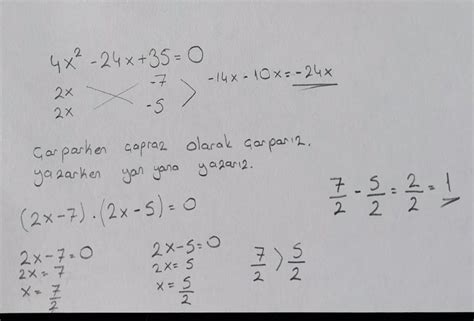 4x² - 24x + 35 = 0
2x -7
2x -5
-14x - 10x = -24x
Çarparken çapraz olarak çarparız.
yazarken yan yana yazarız.
(2x-7) . (2x-5) = 0
2x - 7 = 0
2x = 7
x = 7/2
2x - 5 = 0
2x = 5
x = 5/2
7/2 > 5/2
7/2 - 5/2 = 2/2 = 1